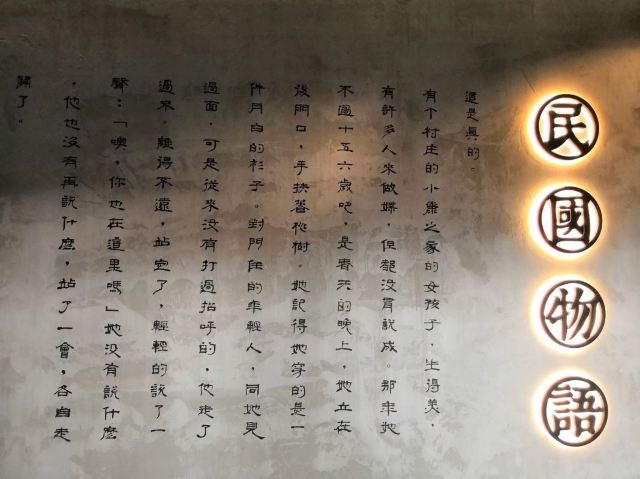 民國物語
這是真的。
有个村庄的小康之家的女孩子，生得美，
有許多人來做媒，但都没有說成。那年她
不過十五六歲吧，是春天的晚上，她立在
後門口，手扶著桃樹。她記得她穿的是一
件月白的衫子。對門住的年輕人，同她見
過面，可是從來没有打過招呼的，他走了
過來。離得不遠，站定了，輕輕的說了一
聲：「噢，你也在這里嗎」她没有說什麼
，他也没有再說什麼，站了一會，各自走
開了。